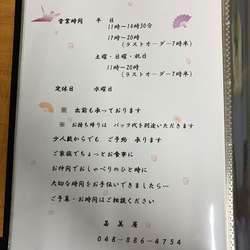 営業時間　平　日
11時～14時30分
17時～20時
（ラストオーダー7時半）
土曜・日曜・祝日
11時～20時
（ラストオーダー7時半）
定休日　水曜日
※　出前も承っております
※　お持ち帰りは　パック代を別途いただきます
少人数からでも　ご予約　承ります
ご家族でちょっとお食事に
お仲間でおしゃべりのひと時に
大切な時間をお手伝いできましたら…
ご予算・お時間はご相談ください
048-886-4754